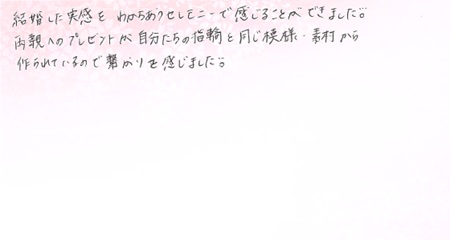 結婚した実感を わかちあうセレモニーで感じることができました。
両親へのプレゼントが自分たちの指輪と同じ模様・素材から
作られているので繋がりを感じました。